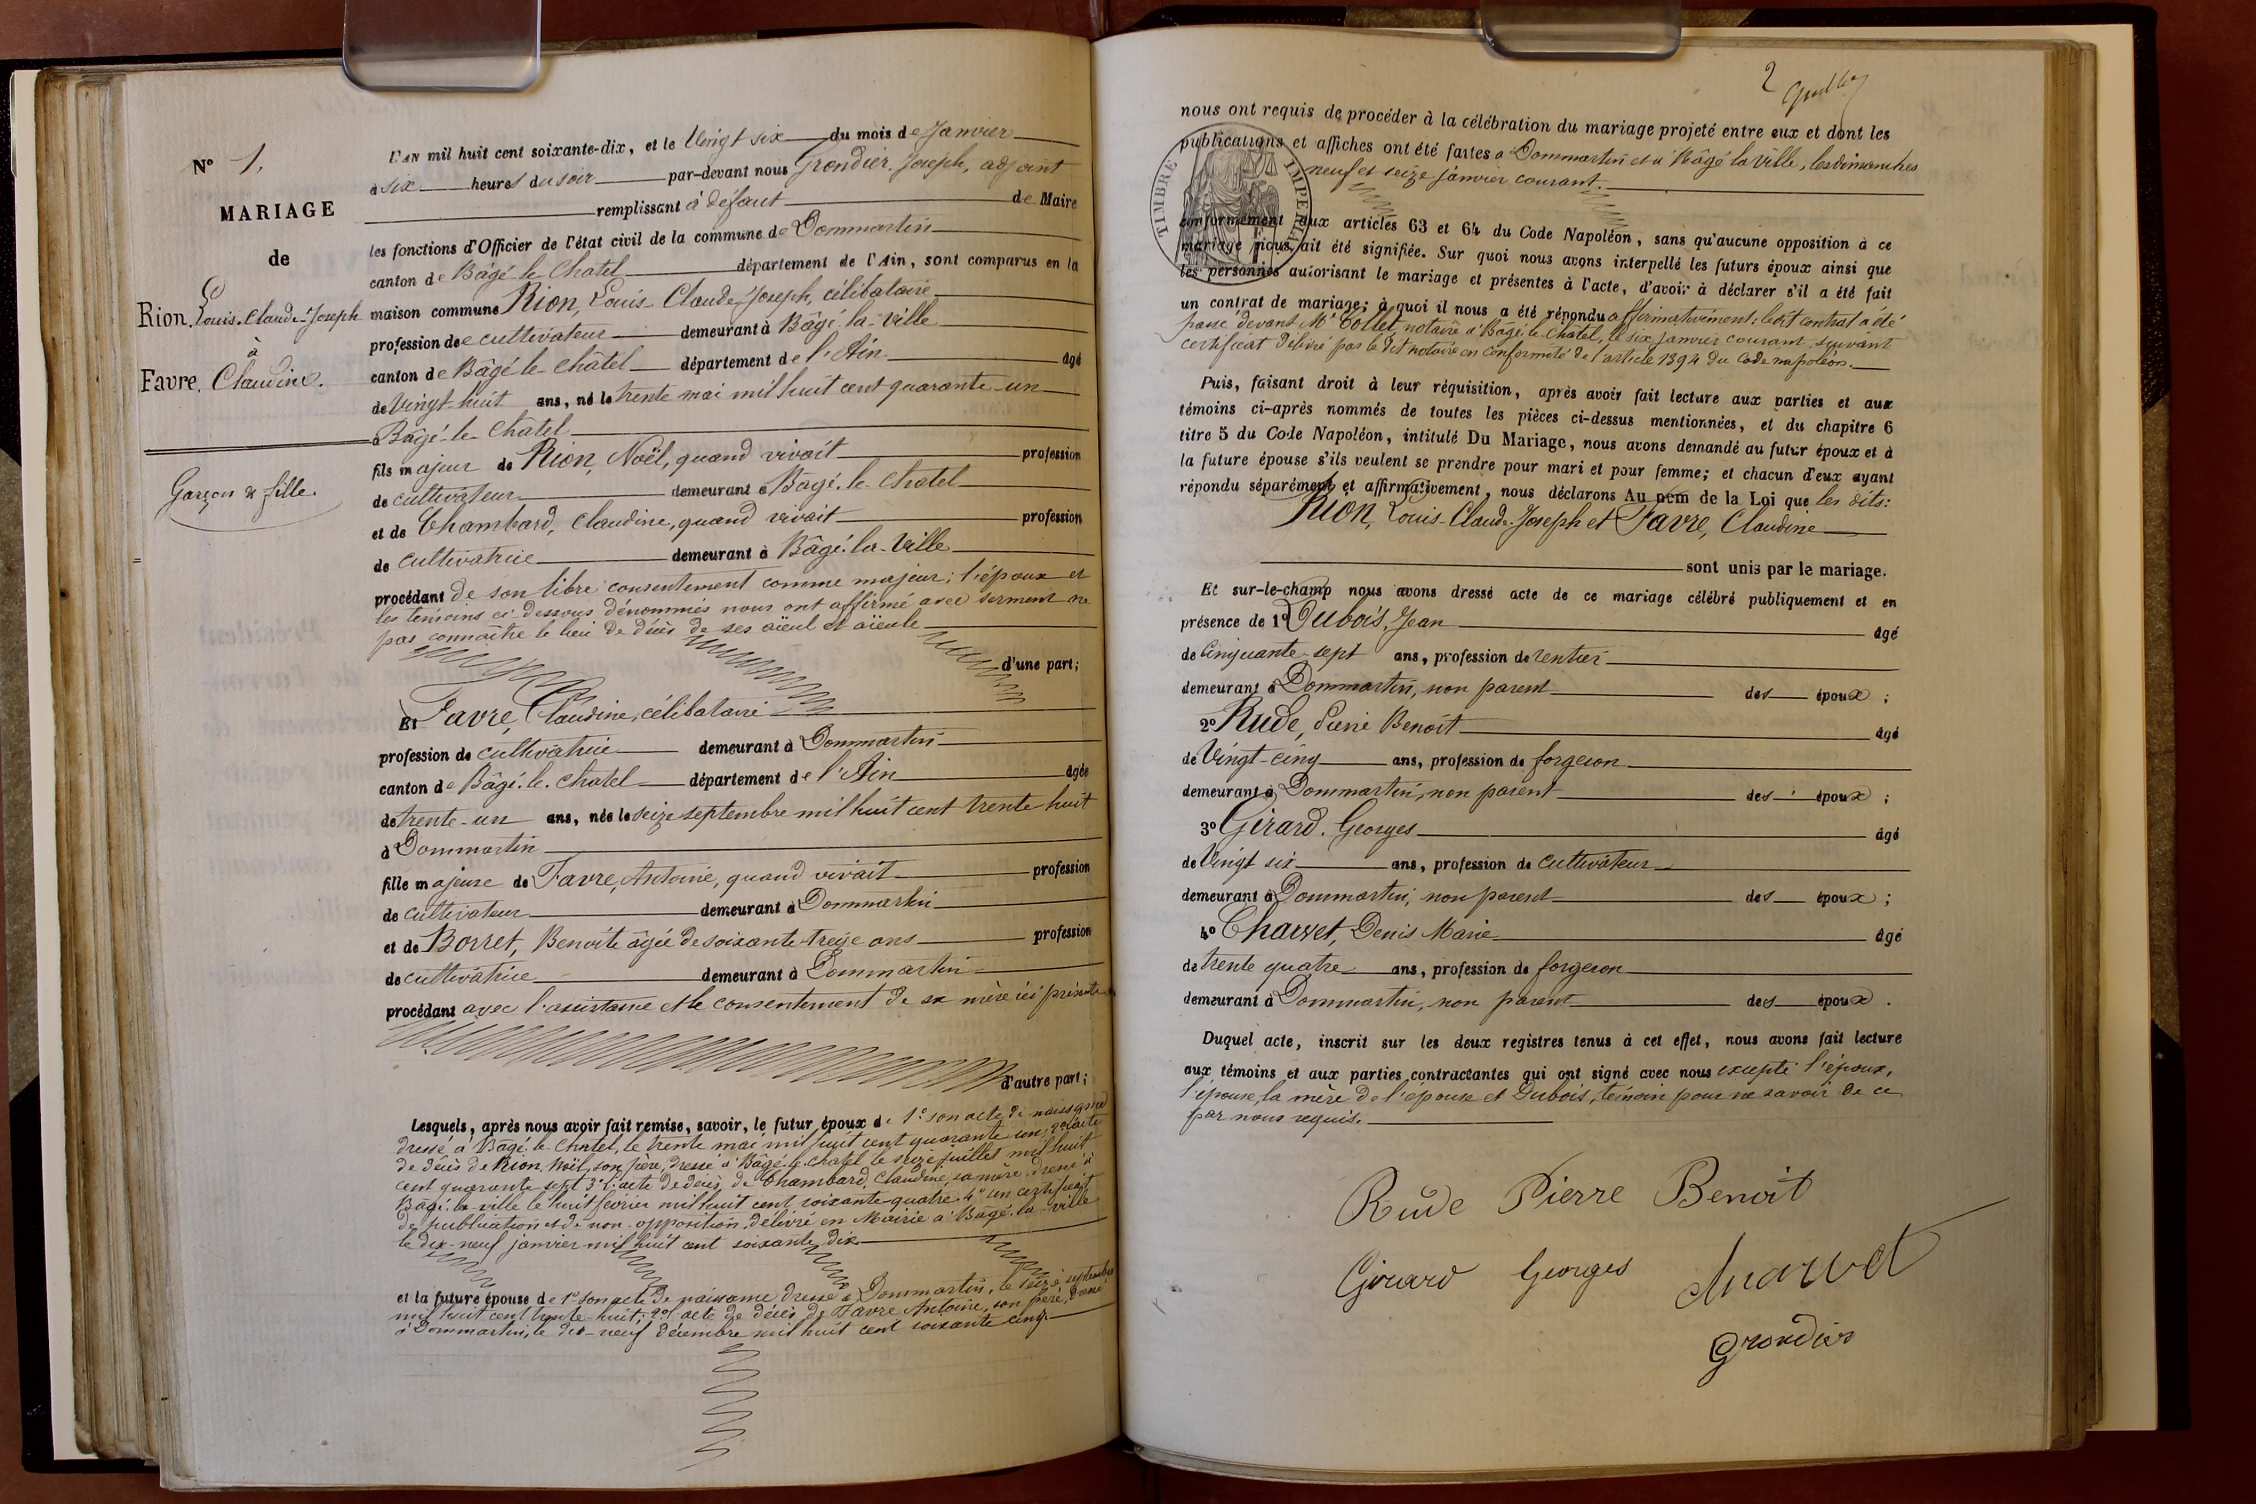 N° 1.
MARIAGE
de
Rion, Louis-Claude-Joseph
à
Favre, Claudine.
Garçon & fille.
L'AN mil huit cent soixante-dix, et le Vingt six du mois de Janvier
à six heures du soir par-devant nous Grondier, Joseph, adjoint
remplissant à défaut de Maire
les fonctions d'Officier de l'état civil de la commune de Dommartin
canton de Bâgé-le-Chatel département de l'Ain, sont comparus en la
maison commune Rion, Louis-Claude-Joseph, célibataire
profession de cultivateur demeurant à Bâgé-la-Ville
canton de Bâgé-le-Châtel département de l'Ain âgé
de Vingt-huit ans, né le trente mai mil huit cent quarante-un
à Bâgé-le-Chatel
fils majeur de Rion, Noël, quand vivait profession
de cultivateur demeurant à Bâgé-le-Chatel
et de Chambard, Claudine, quand vivait profession
de cultivatrice demeurant à Bâgé-la-Ville
procédant de son libre consentement comme majeur; l'époux et
les témoins ci-dessous dénommés nous ont affirmé avec serment ne
pas connaître le lieu de décès de ses aïeul et aïeule
d'une part;
Et Favre, Claudine, célibataire
profession de cultivatrice demeurant à Dommartin
canton de Bâgé-le-Chatel département de l'Ain âgée
de trente-un ans, née le seize septembre mil huit cent trente huit
à Dommartin
fille majeure de Favre, Antoine, quand vivait profession
de cultivateur demeurant à Dommartin
et de Borret, Benoite âgée de soixante-treize ans profession
de cultivatrice demeurant à Dommartin
procédant avec l'assistance et le consentement de sa mère ici présente
d'autre part;
Lesquels, après nous avoir fait remise, savoir, le futur époux de 1° son acte de naissance
dressé à Bâgé-le-Chatel, le trente mai mil huit cent quarante un; 2° l'acte
de décès de Rion, Noël, son père, dressé à Bâgé-le-Chatel le seize juillet mil huit
cent quarante sept 3° l'acte de décès de Chambard, Claudine, sa mère, dressé à
Bâgé-la-ville le huit février mil huit cent soixante-quatre 4° un certificat
de publication et de non-opposition, délivré en Mairie à Bâgé-la-ville
le dix-neuf janvier mil huit cent soixante dix
et la future épouse de 1° son acte de naissance dressé à Dommartin, le seize septembre
mil huit cent trente-huit; 2° l'acte de décès de Favre Antoine, son père, dressé
à Dommartin, le dix-neuf décembre mil huit cent soixante cinq.
2
nous ont requis de procéder à la célébration du mariage projeté entre eux et dont les
publications et affiches ont été faites à Dommartin et à Bâgé la Ville, les dimanches
neuf et seize janvier courant.
TIMBRE IMPERIAL
conformément aux articles 63 et 64 du Code Napoléon, sans qu'aucune opposition à ce
mariage nous ait été signifiée. Sur quoi nous avons interpellé les futurs époux ainsi que
les personnes autorisant le mariage et présentes à l'acte, d'avoir à déclarer s'il a été fait
un contrat de mariage; à quoi il nous a été répondu affirmativement: ledit contrat a été
passé devant Me Collet, notaire à Bâgé-le-Châtel, le six janvier courant, suivant
certificat délivré par le dit notaire en conformité de l'article 1394 du Code napoléon.
Puis, faisant droit à leur réquisition, après avoir fait lecture aux parties et aux
témoins ci-après nommés de toutes les pièces ci-dessus mentionnées, et du chapitre 6
titre 5 du Code Napoléon, intitulé Du Mariage, nous avons demandé au futur époux et à
la future épouse s'ils veulent se prendre pour mari et pour femme; et chacun d'eux ayant
répondu séparément et affirmativement, nous déclarons Au nom de la Loi que les dits:
Rion, Louis-Claude-Joseph et Favre, Claudine
sont unis par le mariage.
Et sur-le-champ nous avons dressé acte de ce mariage célébré publiquement et en
présence de 1° Dubois, Jean âgé
de Cinquante-sept ans, profession de rentier
demeurant à Dommartin, non parent des époux;
2° Rude, Pierre Benoît âgé
de Vingt-cinq ans, profession de forgeron
demeurant à Dommartin, non parent des époux;
3° Girard, Georges âgé
de Vingt six ans, profession de cultivateur
demeurant à Dommartin, non parent des époux;
4° Charvet, Denis Marie âgé
de trente quatre ans, profession de forgeron
demeurant à Dommartin, non parent des époux.
Duquel acte, inscrit sur les deux registres tenus à cet effet, nous avons fait lecture
aux témoins et aux parties contractantes qui ont signé avec nous excepté l'époux,
l'épouse, la mère de l'épouse et Dubois, témoin pour ne savoir de ce
par nous requis.
Rude Pierre Benoit
Girard Georges Charvet
Grondier